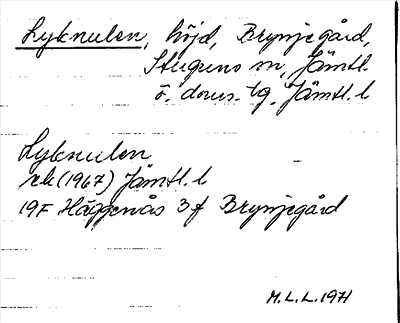 Lyknulen, höjd, Brynjegård,
Stuguns sn, Jämtl.
ö. doms. tg, Jämtl. l
Lyknulen
rek (1967) Jämtl. l
19F Häggenås 3f Brynjegård
M.L.L. 1971